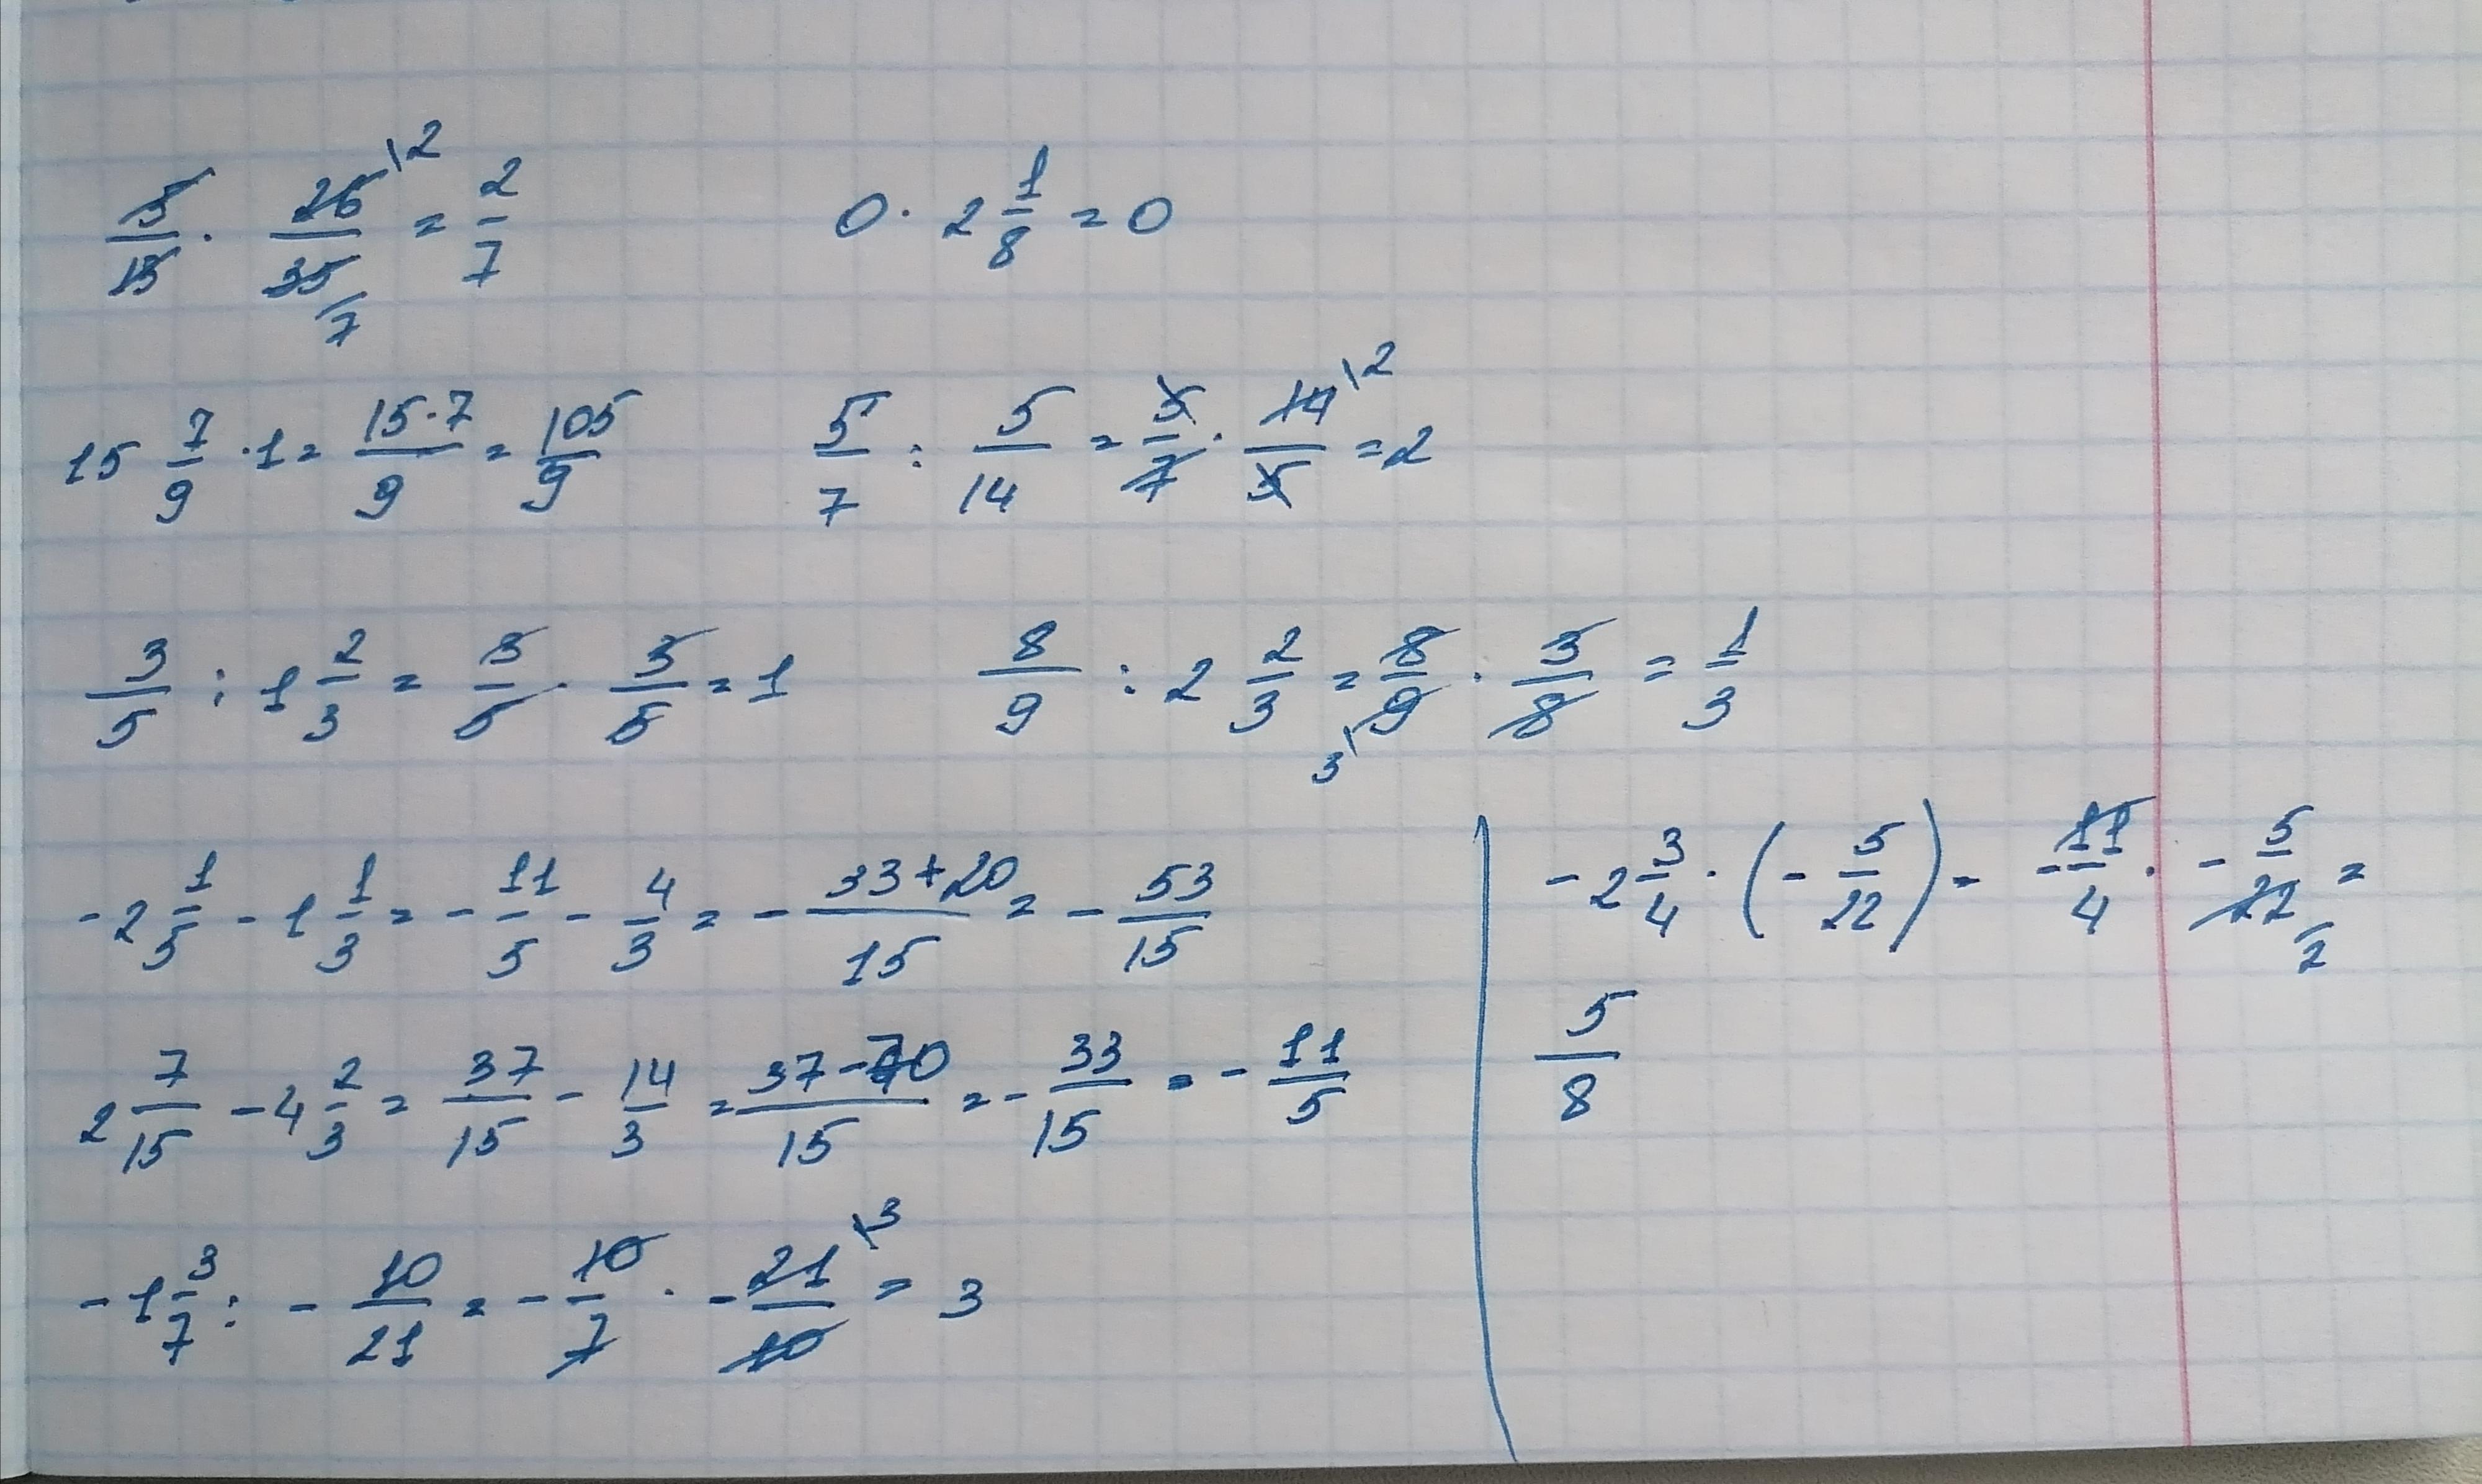 5/13 · 26/35 = 2/7 \2 /7
0 · 2 1/8 = 0
15 7/9 · 1 = 15·7/9 = 105/9
5/7 : 5/14 = 5/7 · 14/5 = 2 \2
3/5 : 1 2/3 = 3/5 · 3/5 = 1
8/9 : 2 2/3 = 8/9 · 3/8 = 1/3 3\
-2 1/5 - 1 1/3 = - 11/5 - 4/3 = - 33+20/15 = - 53/15
2 7/15 - 4 2/3 = 37/15 - 14/3 = 37-70/15 = - 33/15 = - 11/5
-1 3/7 : - 10/21 = - 10/7 · - 21/10 = 3 \3
-2 3/4 · (- 5/22) = - 11/4 · - 5/22 = /2
5/8